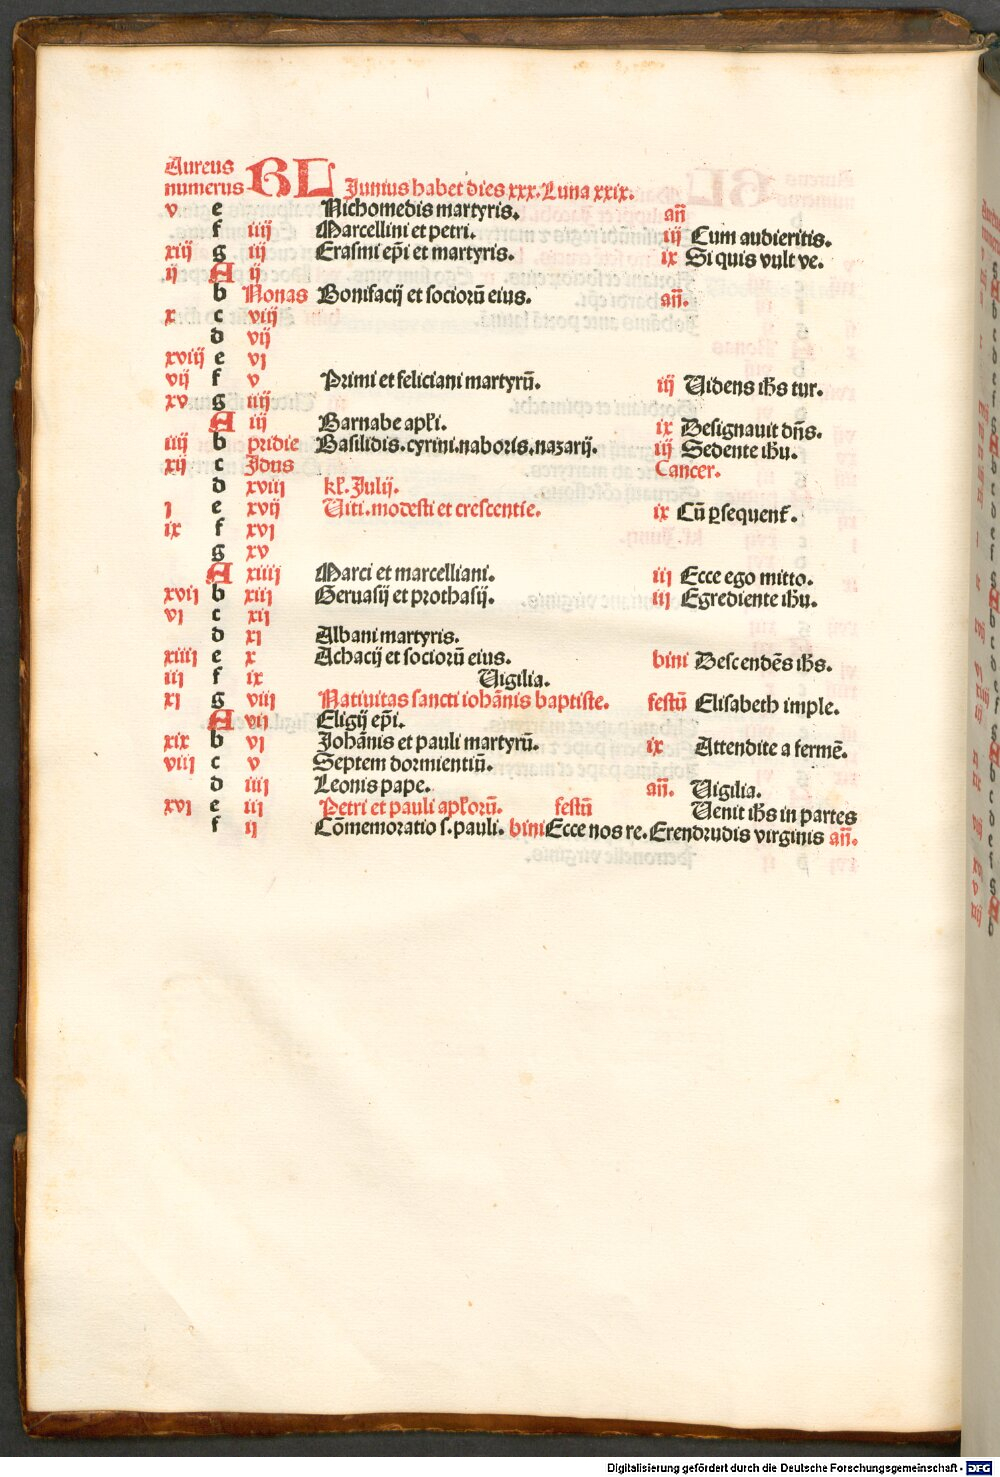 Aureus
numerus KL Junius habet dies xxx. Luna xxix.
v e Nichomedis martyris. añ
f iiij Marcellini et petri. iij Cum audieritis.
xiij g iij Erasmi ep̃i et martyris. ix Si quis vult ve.
ij A ij
b Nonas Bonifacij et sociorũ eius. añ.
x c viij
d vij
xviij e vj
vij f v Primi et feliciani martyrũ. iij Videns ih̃s tur.
xv g iiij
A iij Barnabe apl̃i. ix Designauit dñs.
iiij b pridie Basilidis. cyrini. naboris. nazarij. iij Sedente ih̃u.
xij c Jdus Cancer.
d xviij kl̃. Julij.
j e xvij Viti. modesti et crescentie. ix Cũ ꝑsequent̃.
ix f xvj
g xv
A xiiij Marci et marcelliani. iij Ecce ego mitto.
xvij b xiij Geruasij et prothasij. iij Egrediente ih̃u.
vj c xij
d xj Albani martyris.
xiiij e x Achacij et sociorũ eius. bini Descendẽs ih̃s.
iij f ix Vigilia.
xj g viij Natiuitas sancti iohãnis baptiste. festũ Elisabeth imple.
A vij Eligij ep̃i.
xix b vj Johãnis et pauli martyrũ. ix Attendite a fermẽ.
viij c v Septem dormientiũ.
d iiij Leonis pape. añ. Vigilia.
xvj e iij Petri et pauli apl̃orũ. festũ Venit ih̃s in partes
f ij Cõmemoratio s. pauli. bini Ecce nos re. Erendrudis virginis añ.
Digitalisierung gefördert durch die Deutsche Forschungsgemeinschaft - DFG